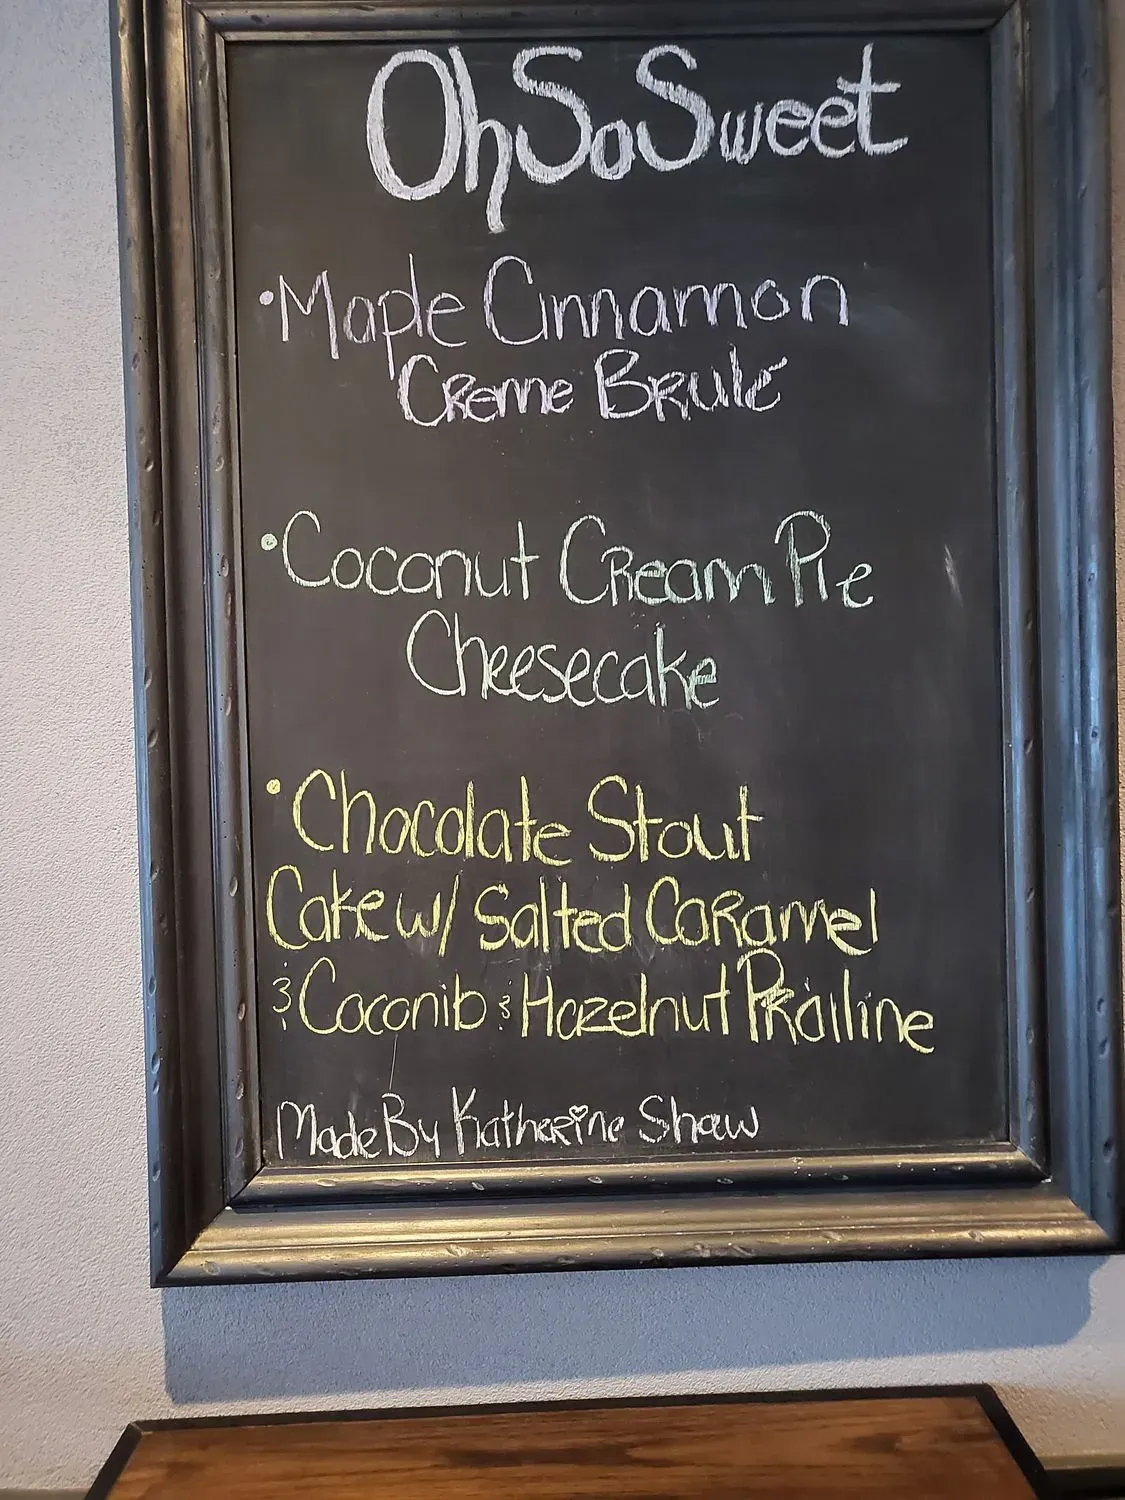 Oh So Sweet
• Maple Cinnamon
Creme Brulé
• Coconut Cream Pie
Cheesecake
• Chocolate Stout
Cake w/ Salted Caramel
& Coconib & Hazelnut Prailine
Made By Katherine Shaw